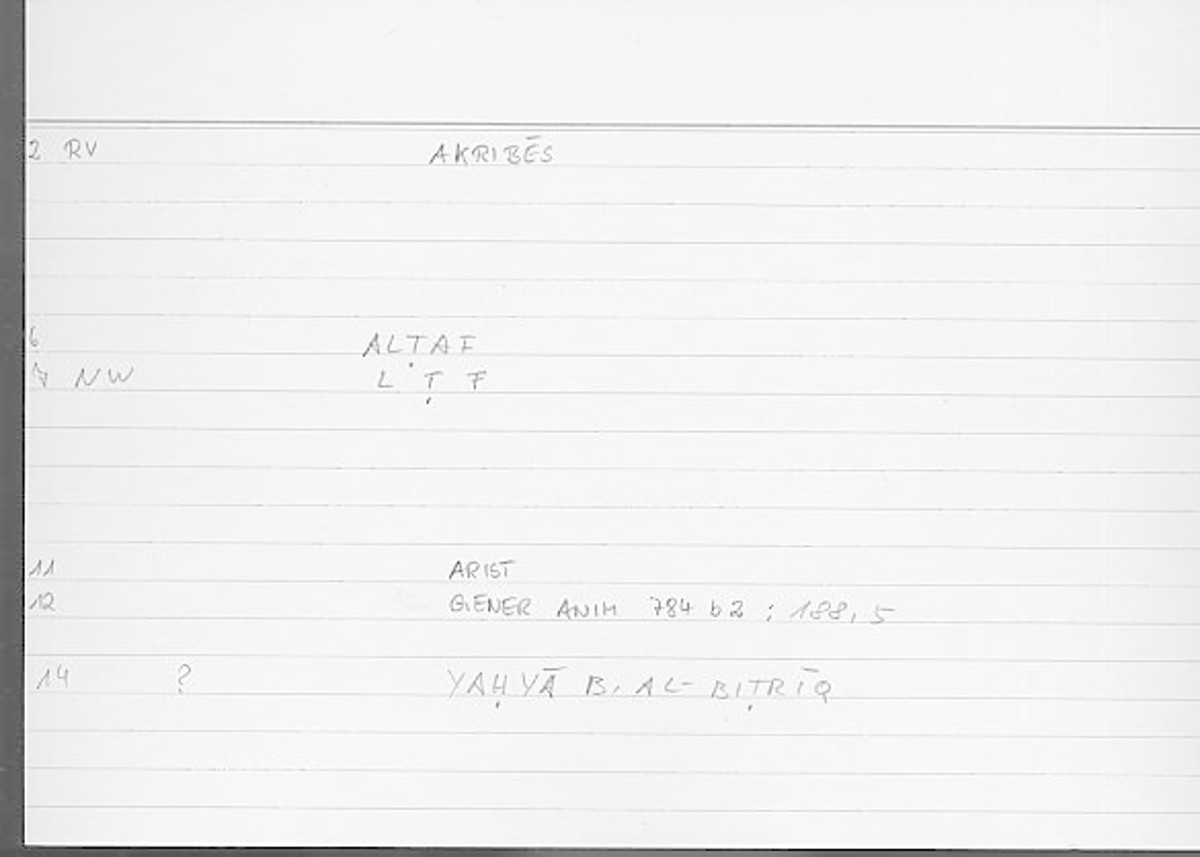 2 RV AKRIBĒS
6 ALṬAF
7 NW L Ṭ F
11 ARIST
12 GENER ANIM 784 b 2 ; 188, 5
14 ? YAḤYĀ B. AL-BIṬRĪQ